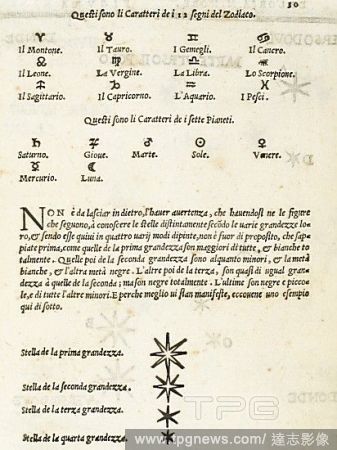 10
Questi sono li Caratteri de i 12 segni del Zodiaco.
♈ ♉ ♊ ♋
Il Montone. Il Tauro. I Gemegli. Il Cancro.
♌ ♍ ♎ ♏
Il Leone. La Vergine. La Libra. Lo Scorpione.
♐ ♑ ♒ ♓
Il Sagittario. Il Capricorno. L'Aquario. I Pesci.
Questi sono li Caratteri de i sette Pianeti.
♄ ♃ ♂ ☉ ♀
Saturno. Gioue. Marte. Sole. Venere.
☿ ☾
Mercurio. Luna.
NON è da lasciar in dietro, l'hauer auertenza, che hauendosi ne le figure
che seguono, à conoscere le stelle distintamente secõdo le uarie grandezze loro
ro, & sendo esse quiui in quattro uarij modi dipinte, non è fuor di proposito, che sappiate
piate prima, come quelle de la prima grandezza son maggiori di tutte, & bianche to
talmente. Quelle poi de la seconda grandezza sono alquanto minori, & la metà
bianche, & l'altra metà negre. L'altre poi de la terza, son quasi di ugual grandezza
dezza à quelle de la seconda; ma son negre totalmente. L'ultime son negre e picco-
le, e di tutte l'altre minori. E perche meglio ui sian manifeste, eccouene uno esempio
qui di sotto.
Stella de la prima grandezza.
Stella de la seconda grandezza.
Stella de la terza grandezza.
Stella de la quarta grandezza.
TPG
www.tpgnews.com / 達志影像